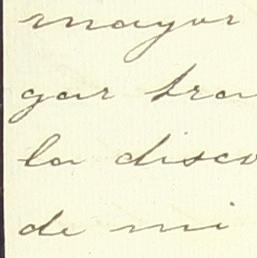 mayor
gar tra
la disco
de mi